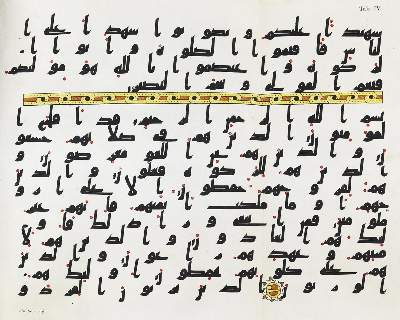 شهيدا عليكم وتكونوا شهدا على ا
لناس فاقيموا الصلوة واتوا ا
لزكوة واعتصموا بالله هو موليكم
فنعم المولى ونعم النصير
بسم الله الرحمن الرحيم قد افلح ا
لمومنون الذين هم في صلاتهم خشعو
ن والذين هم عن اللغو معرضون و
الذين هم للزكوة فعلون والذين
هم لفروجهم حفظون الا على ازو
جهم او ما ملكت ايمنهم فانهم غير
ملومين فمن ابتغى ورا ذلك فاو
ليك هم العدون والذين هم لا
منتهم وعهدهم رعون والذين
هم على صلوتهم يحفظون اوليك هم
الورثون الذين يرثون الفردو